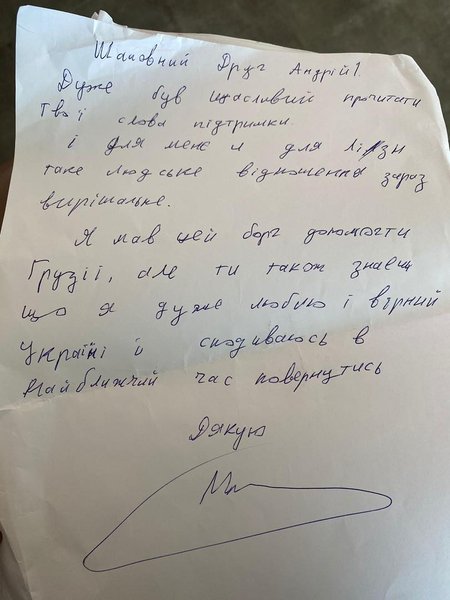 Шановний Друг Андрій!
Дуже був щасливий прочитати
твої слова підтримки.
і для мене и для Лізи
таке людське відношення зараз
вирішальне.
Я мав цей борг допомогти
Грузії, але ти також знаєш
що я дуже люблю і вірний
Україні й сподиваюсь в
найближчий час повернутись
Дякую